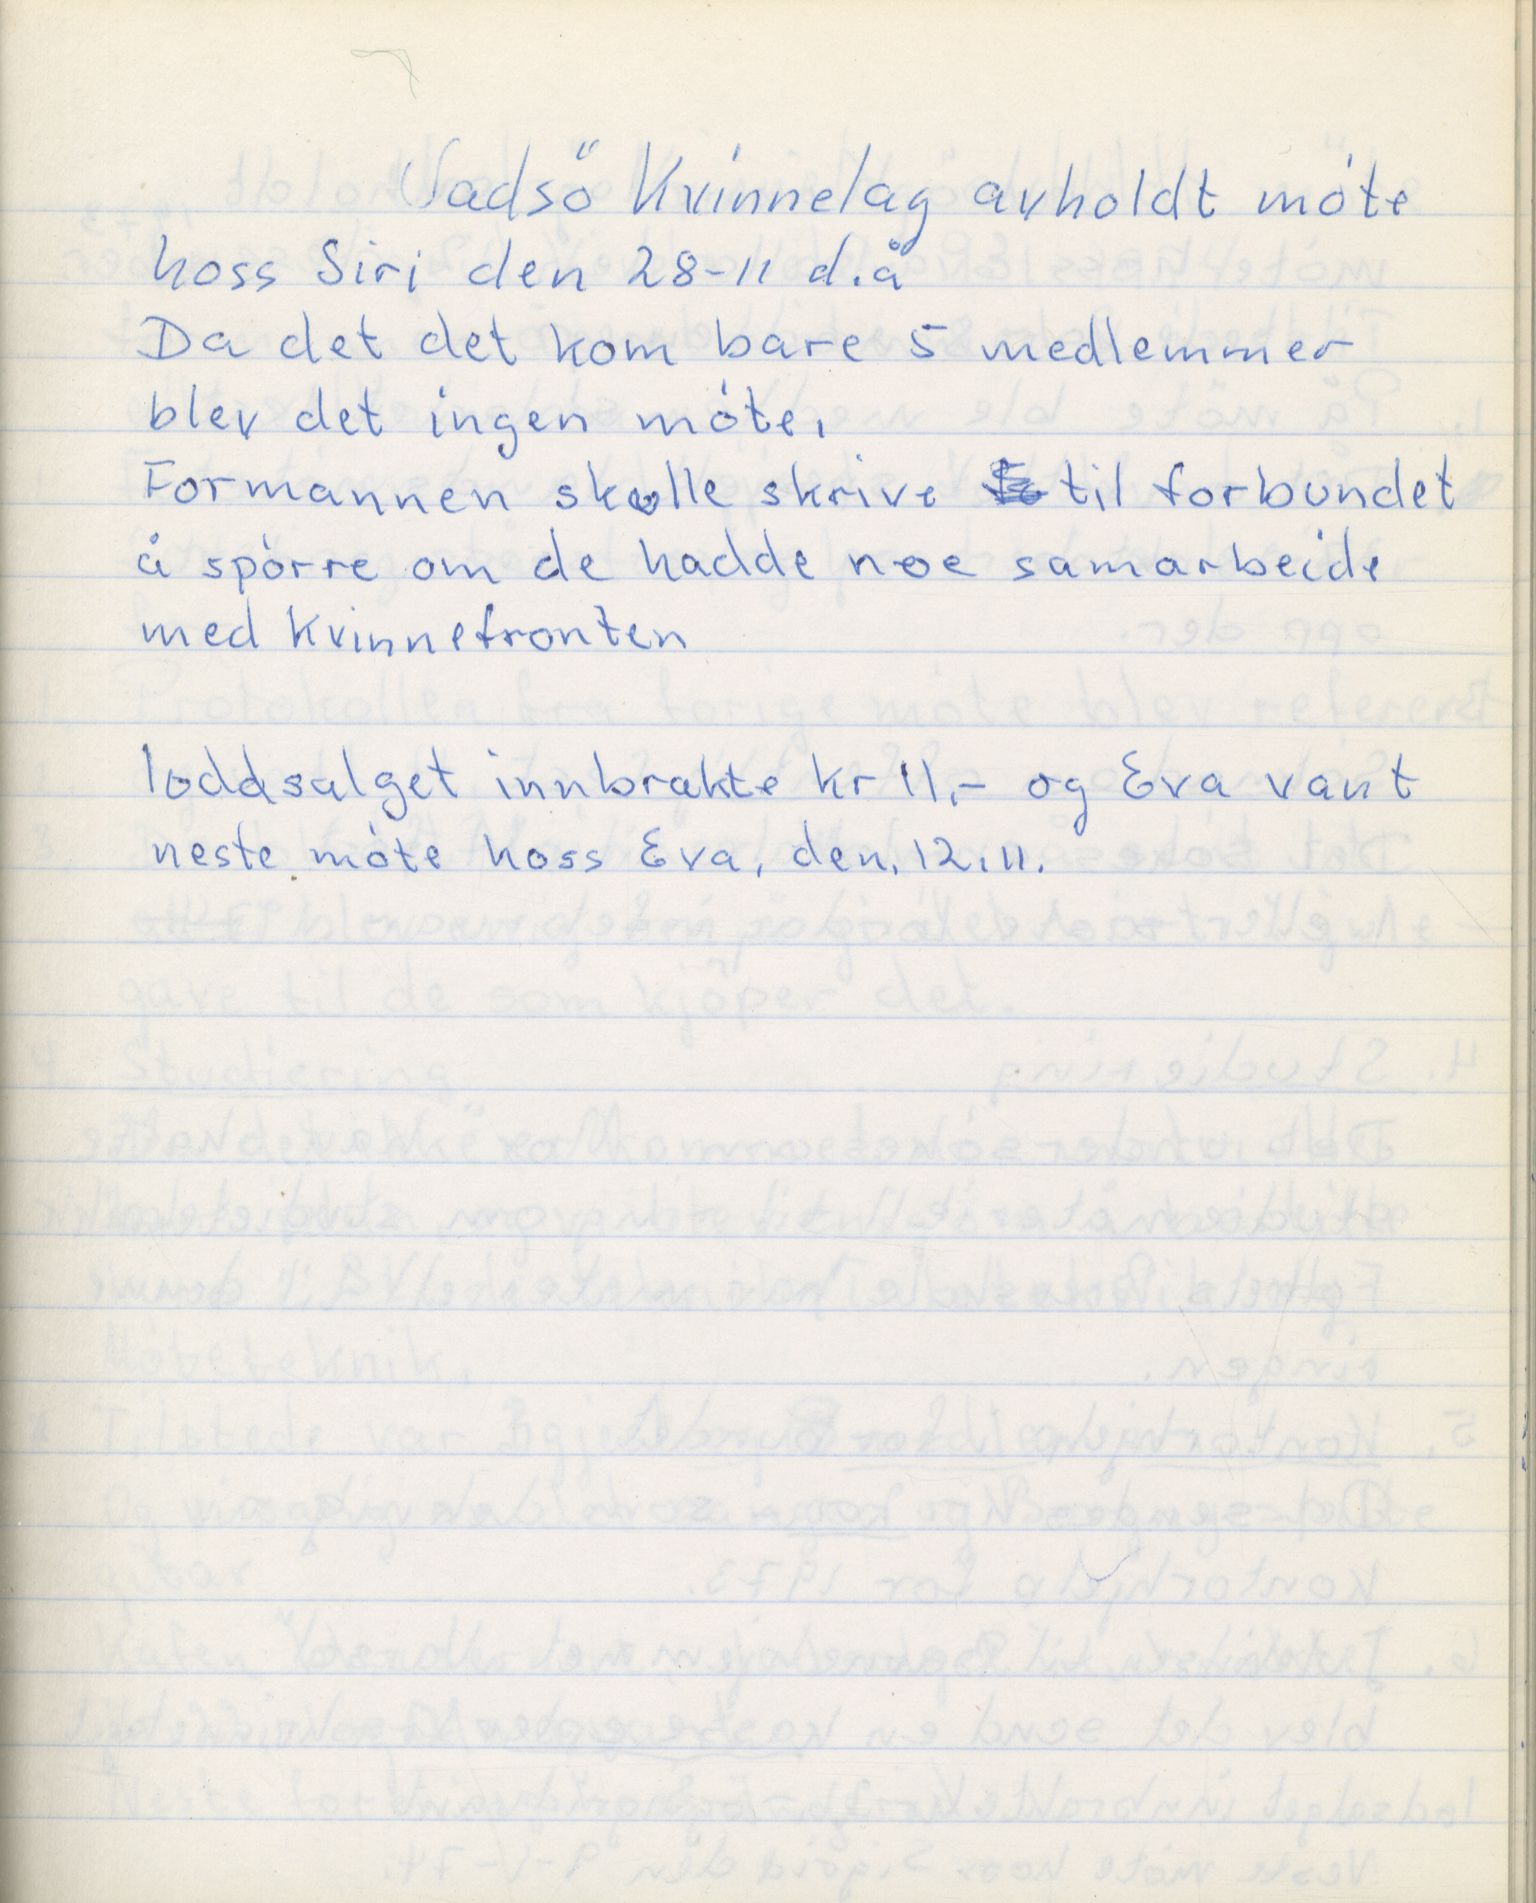 Vadsö Kvinnelag avholdt móte
hoss Siri den 28-11 d.å
Da det det kom bare 5 medlemmer
blev det ingen móte.
Formannen skulle skrive til forbundet
å spórre om de hadde noe samarbeide
med Kvinnefronten
loddsalget innbrakte kr 11,- og Eva vant
neste móte hoss Eva, den. 12.11.